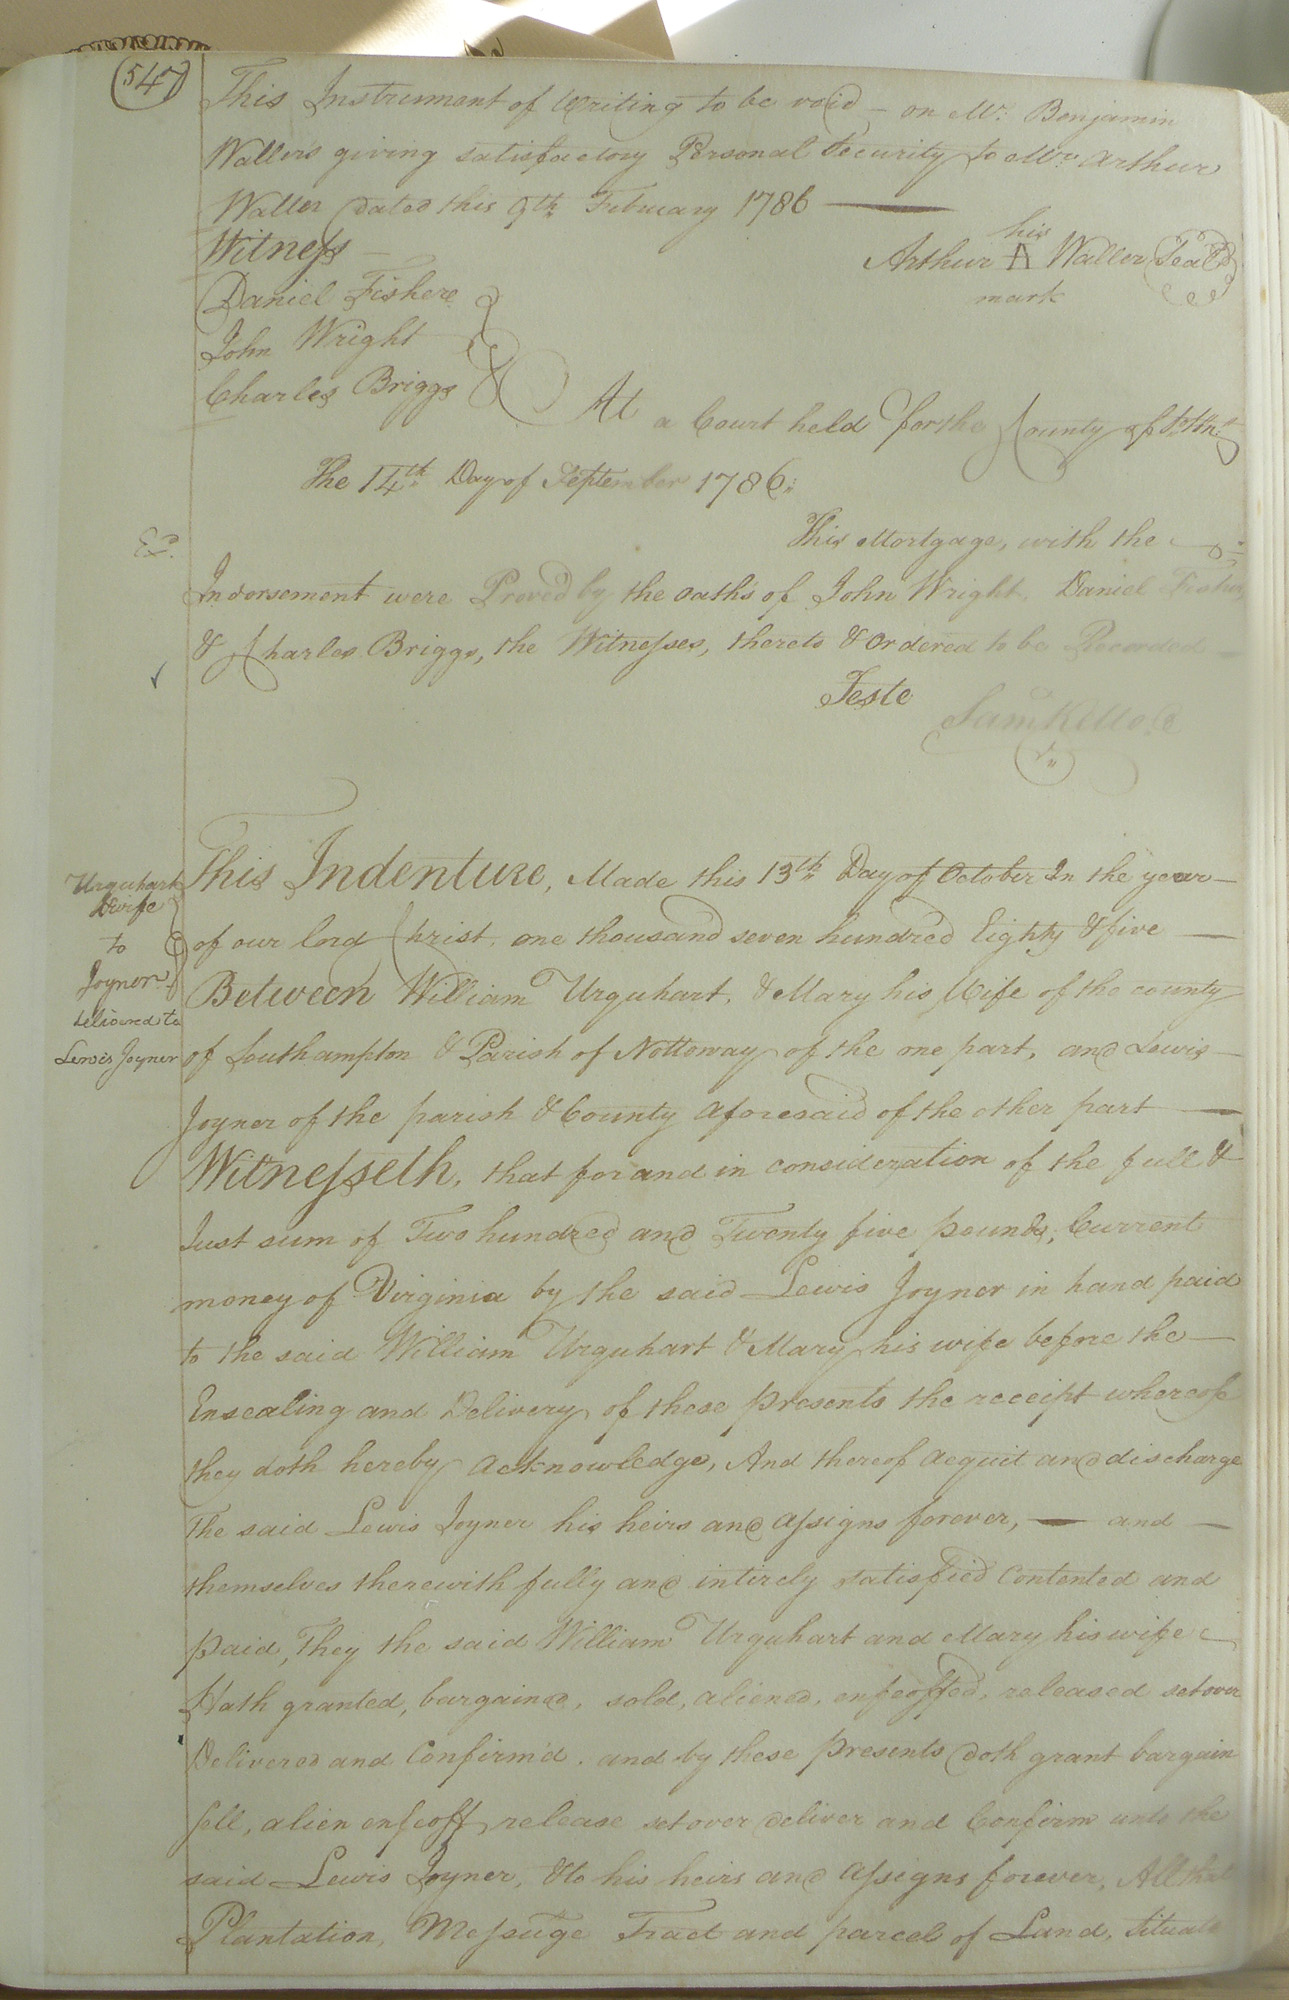 547
This Instrument of Writing to be void - on Mr. Benjamin
Waller's giving satisfactory Personal Security to Mr. Arthur
Waller Dated this 9th. February 1786 —
Witness
his
Arthur A Waller Seal
mark
Daniel Fishere
John Wright
Charles Briggs
At a Court held for the County of
The 14th Day of September 1786.
This Mortgage, with the
Ex.
Indorsement were Proved by the oaths of John Wright. Daniel Fisher
& Charles Briggs, the Witnesses, thereto & ordered to be Recorded
Teste
Sam Kello C
Urquhart
& wife
to
Joyner
delivered to
Lewis Joyner
This Indenture, Made this 13th. Day of October In the year —
of our lord Christ, one thousand seven hundred Eighty & five —
Between William Urquhart, & Mary his Wife of the county
of Southampton & Parish of Nottoway of the one part, and Lewis —
Joyner of the parish & County aforesaid of the other part —
Witnesseth, that for and in consideration of the full &
Just sum of Two hundred and Twenty five pounds, Current
money of Virginia by the said Lewis Joyner in hand paid
to the said William Urquhart & Mary his wife before the —
Ensealing and Delivery of these presents the receipt whereof
they doth hereby acknowledge, And thereof acquit and discharge
The said Lewis Joyner his heirs and assigns forever, — and —
themselves therewith fully and intirely satisfied contented and
paid, They the said William Urquhart and Mary his wife
Hath granted, bargained, sold, aliened, enfeoffed, released setover
Delivered and Confirm'd. and by these presents doth grant bargain
sell, alien enfeoff, release setover deliver and Confirm unto the
said Lewis Joyner, & to his heirs and assigns forever, All that
Plantation, Messuage Tract and parcel of Land, Situate